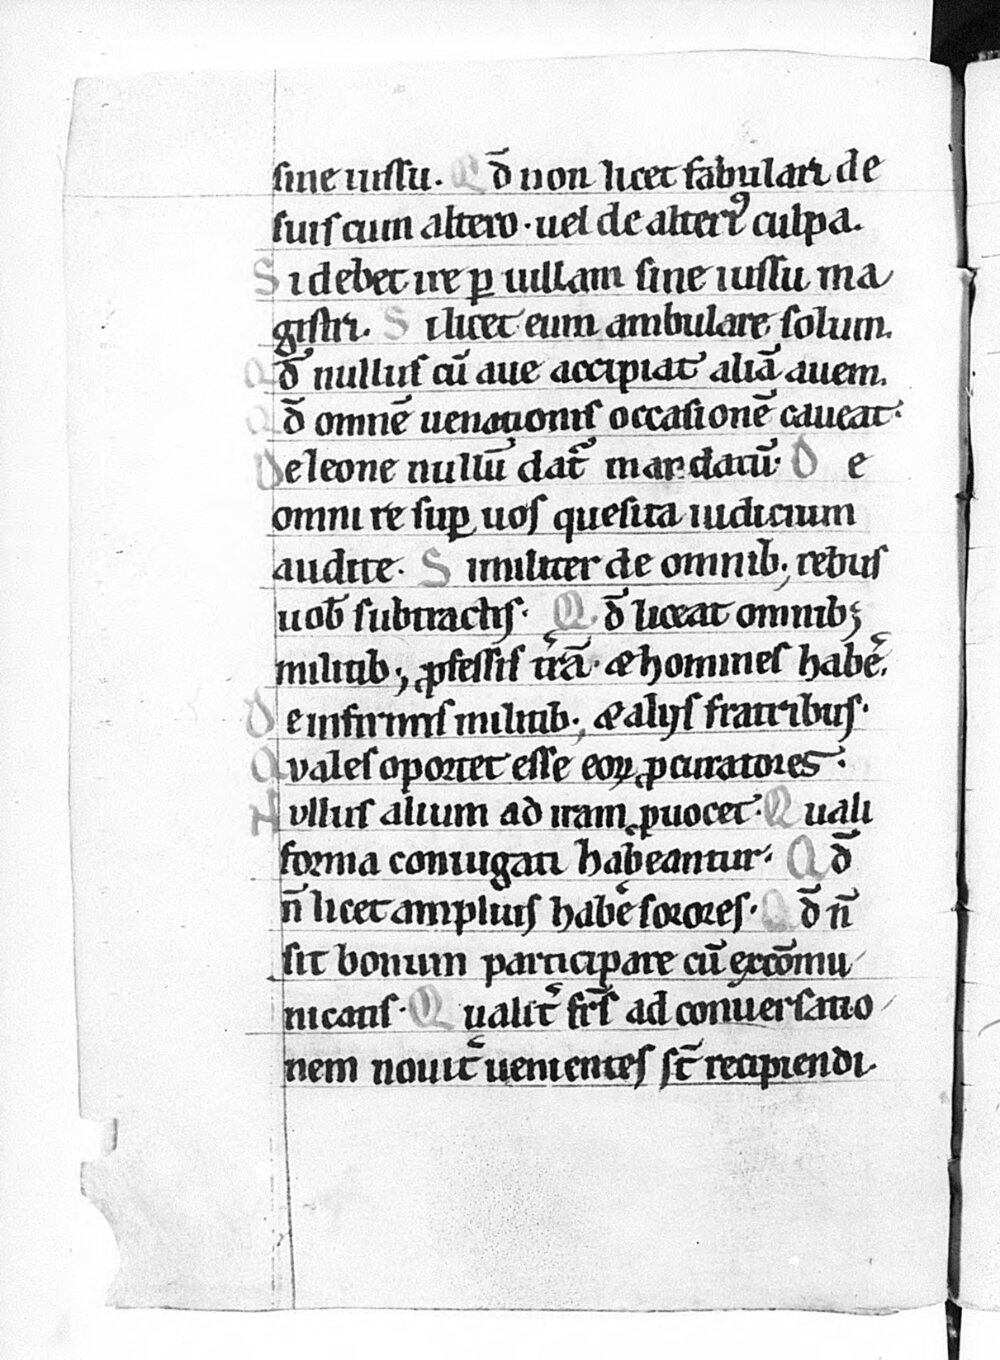 sine iussu. Qđ non licet fabulari de
suis cum altero. uel de alteri9 culpa.
Si debet ire ꝑ uillam sine iussu ma
gistri. Si licet eum ambulare solum.
Qđ nullus cū aue accipiat aliā auem.
Qđ omnē uenationis occasionē caueat.
De leone nullū dat᷑ mandatū. De
omni re suꝑ uos quesita iudicium
audite. Similiter de omnib; rebus
uob̄ subtractis. Qđ liceat omnib;
militib; ꝓfessis t᷑rā. & homines habe᷑.
De infirmis militib; & alijs fratribus.
Quales oportet esse eoꝝ ꝓcuratores.
Nullus alium ad iram ꝓuocet. Quali
forma coniugati habeantur. Qđ
n̄ licet amplius habe᷑ sorores. Qđ n̄
sit bonum participare cū excōmu
nicatis. Qualit᷑ fr̄s ad conuersatio
nem nouit᷑ uenientes st̄ recipiendi.